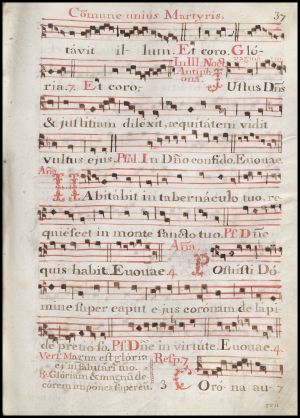 Cõmune unius Martyris. 37
távit il- lum. Et coro. Gló-
In III. Noct.
Antiph-
onâ.
ria. 7. Et coro. JUstus Dñs
& justitiam diléxit, æquitátem vidit
vultus ejus. Psal. In Dño confído. Euouae.
Añã.
HAbitábit in tabernáculo tuo, re-
quiéscet in monte sancto tuo. Ps. Dñe
Añã.
quis habit. Euouae. 4. POsuísti Dó-
mine super caput ejus corónam de lápi-
de pretióso. Ps. Dñe in virtute. Euouae. 4.
Vers. Magna est glória Resp. 7.
ejus in salutári tuo.
R. Glóriam & magnũ de-
córem impónes super eũ. 3 COró- na au- 7